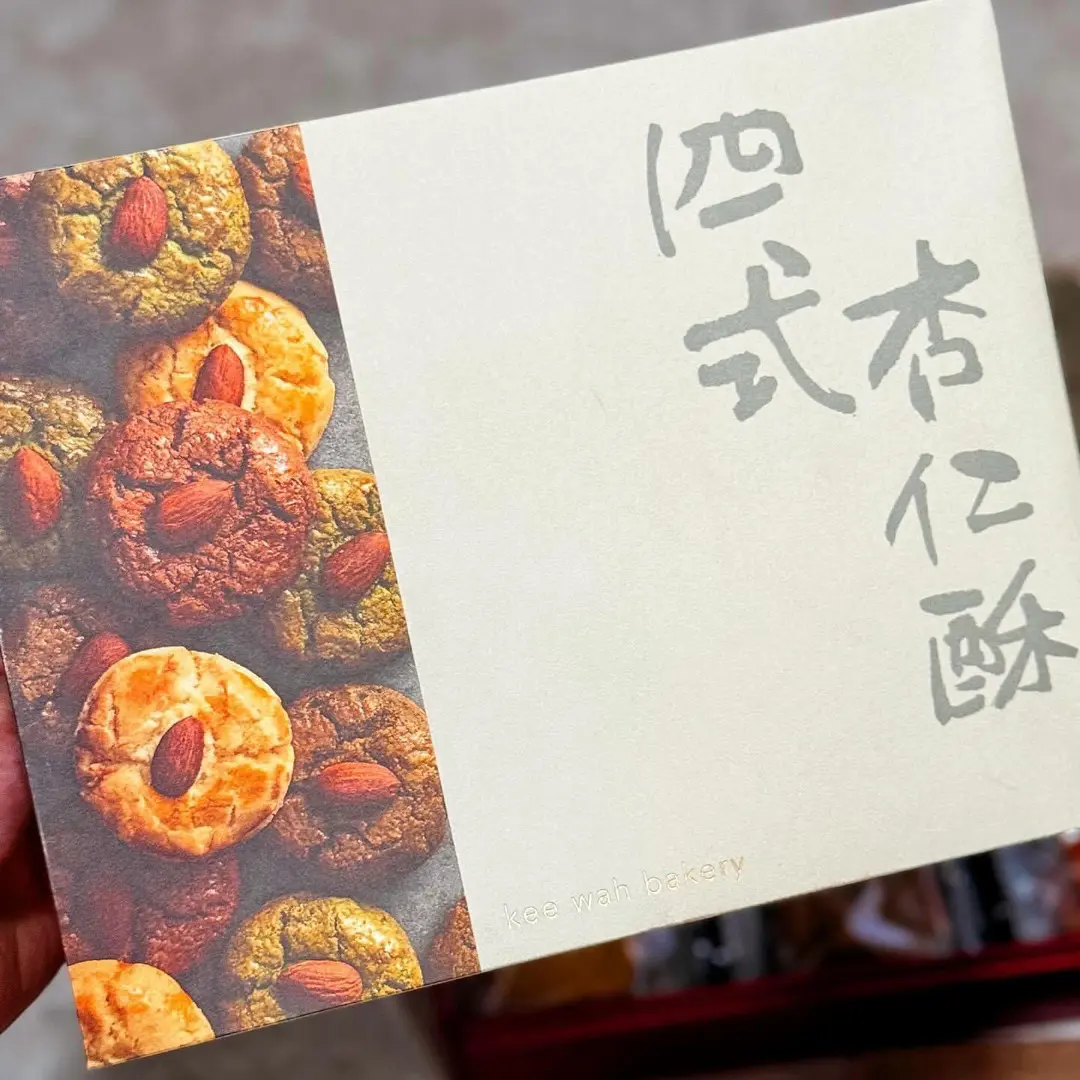 四式
杏仁酥
kee wah bakery